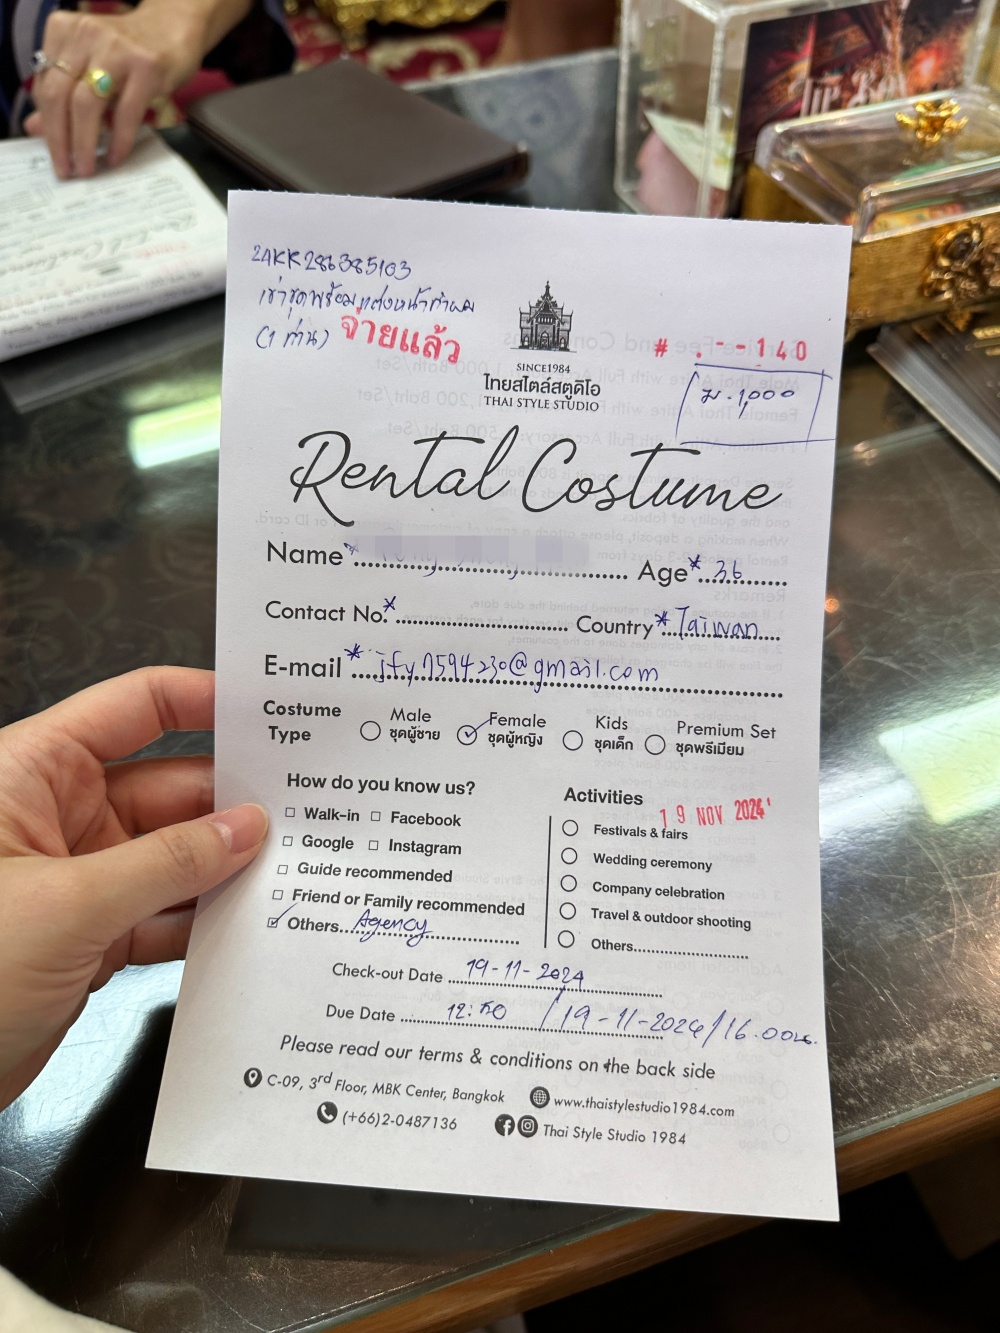 24KK286385103
เช่าชุดพร้อมแต่งหน้าทำผม
(1 ท่าน) จ่ายแล้ว
SINCE1984
ไทยสไตล์สตูดิโอ
THAI STYLE STUDIO
# . - - 140
ม. 1,000
Rental Costume
Name*
Age* 36
Contact No.*
Country* Taiwan
E-mail * jfy7594230@gmail.com
Costume Type
Male ชุดผู้ชาย
Female ชุดผู้หญิง
Kids ชุดเด็ก
Premium Set ชุดพรีเมียม
How do you know us?
Walk-in Facebook
Google Instagram
Guide recommended
Friend or Family recommended
Others Agency
Activities
19 NOV 2024
Festivals & fairs
Wedding ceremony
Company celebration
Travel & outdoor shooting
Others
Check-out Date 19-11-2024
Due Date 12:50 / 19-11-2024/16.00น.
Please read our terms & conditions on the back side
C-09, 3rd Floor, MBK Center, Bangkok
www.thaistylestudio1984.com
(+66)2-0487136
Thai Style Studio 1984